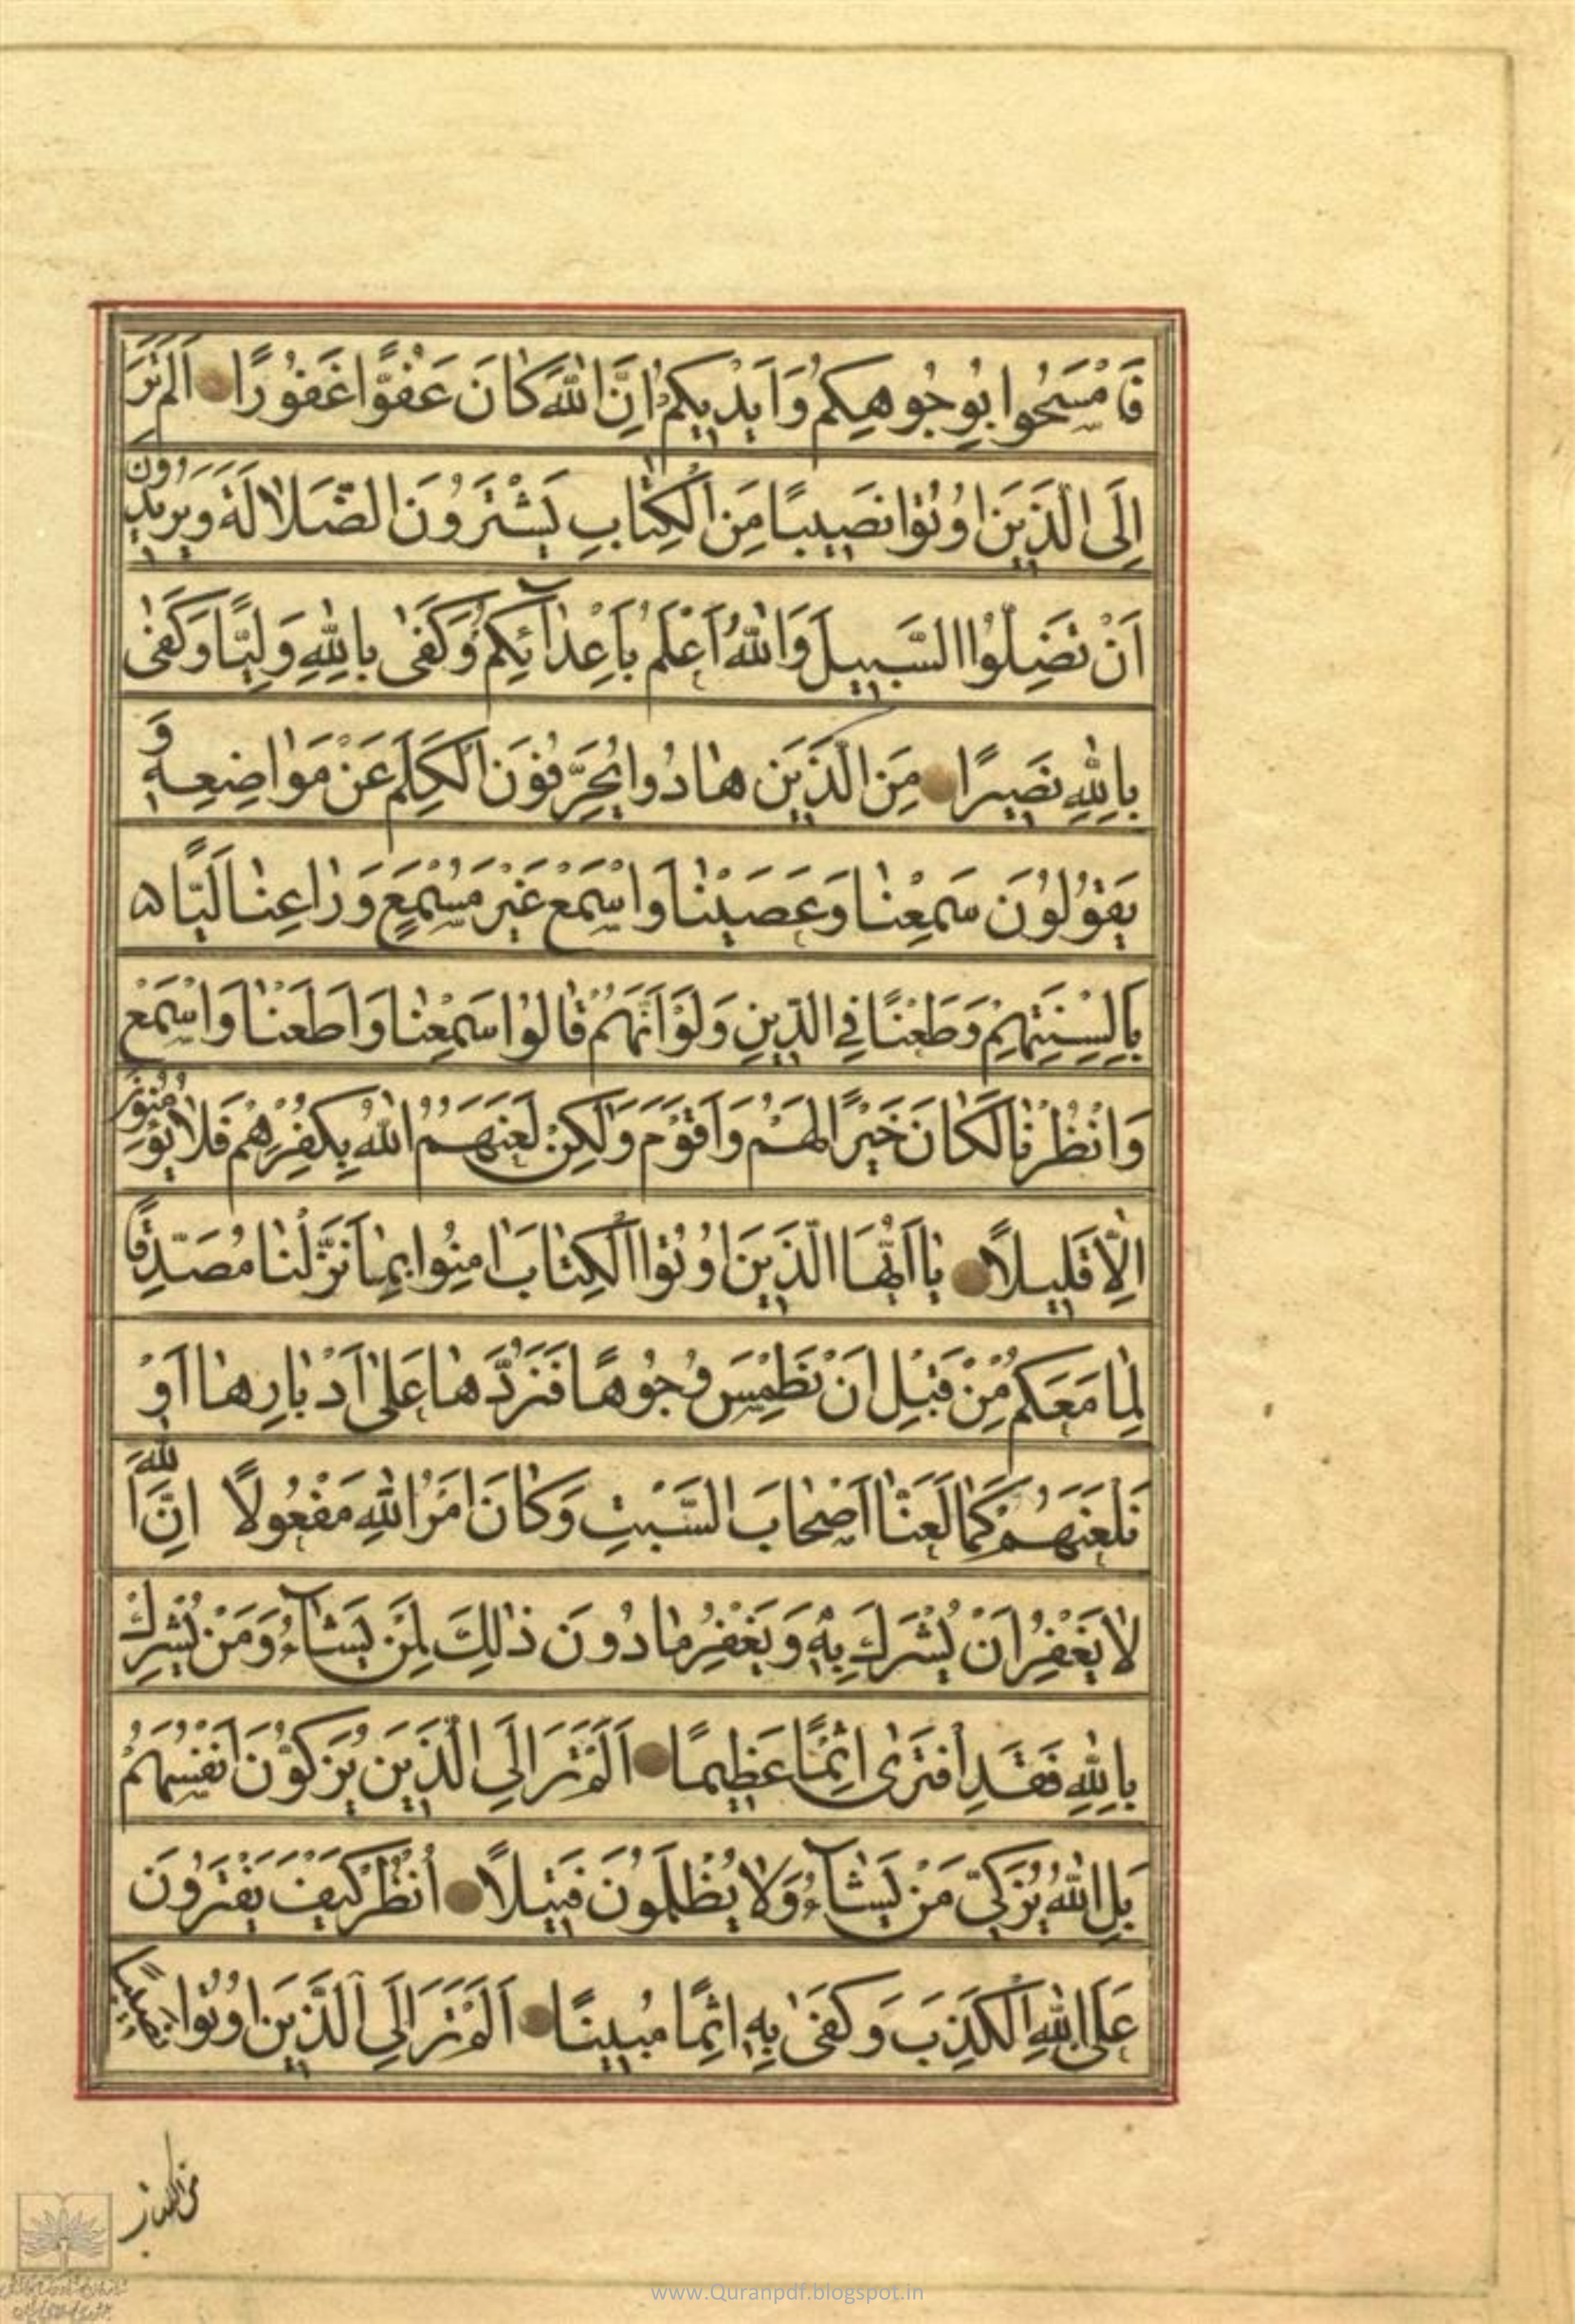 فَامْسَحُوا بِوُجُوهِكُمْ وَاَيْدِيكُمْ اِنَّ اللّٰهَ كَانَ عَفُوًّا غَفُورًا اَلَمْ تَرَ
اِلَى الَّذِينَ اُوتُوا نَصِيبًا مِنَ الْكِتَابِ يَشْتَرُونَ الضَّلَالَةَ وَيُرِيدُونَ
اَنْ تَضِلُّوا السَّبِيلَ وَاللّٰهُ اَعْلَمُ بِاَعْدَآئِكُمْ وَكَفٰى بِاللّٰهِ وَلِيًّا وَكَفٰى
بِاللّٰهِ نَصِيرًا مِنَ الَّذِينَ هَادُوا يُحَرِّفُونَ الْكَلِمَ عَنْ مَوَاضِعِهِ وَ
يَقُولُونَ سَمِعْنَا وَعَصَيْنَا وَاسْمَعْ غَيْرَ مُسْمَعٍ وَرَاعِنَا لَيًّا
بِاَلْسِنَتِهِمْ وَطَعْنًا فِي الدِّينِ وَلَوْ اَنَّهُمْ قَالُوا سَمِعْنَا وَاَطَعْنَا وَاسْمَعْ
وَانْظُرْنَا لَكَانَ خَيْرًا لَهُمْ وَاَقْوَمَ وَلٰكِنْ لَعَنَهُمُ اللّٰهُ بِكُفْرِهِمْ فَلَا يُؤْمِنُونَ
اِلَّا قَلِيلًا يَا اَيُّهَا الَّذِينَ اُوتُوا الْكِتَابَ اٰمِنُوا بِمَا نَزَّلْنَا مُصَدِّقًا
لِمَا مَعَكُمْ مِنْ قَبْلِ اَنْ نَطْمِسَ وُجُوهًا فَنَرُدَّهَا عَلٰى اَدْبَارِهَا اَوْ
نَلْعَنَهُمْ كَمَا لَعَنَّا اَصْحَابَ السَّبْتِ وَكَانَ اَمْرُ اللّٰهِ مَفْعُولًا اِنَّ اللّٰهَ
لَا يَغْفِرُ اَنْ يُشْرَكَ بِهِ وَيَغْفِرُ مَا دُونَ ذٰلِكَ لِمَنْ يَشَآءُ وَمَنْ يُشْرِكْ
بِاللّٰهِ فَقَدِ افْتَرٰى اِثْمًا عَظِيمًا اَلَمْ تَرَ اِلَى الَّذِينَ يُزَكُّونَ اَنْفُسَهُمْ
بَلِ اللّٰهُ يُزَكِّي مَنْ يَشَآءُ وَلَا يُظْلَمُونَ فَتِيلًا اُنْظُرْ كَيْفَ يَفْتَرُونَ
عَلَى اللّٰهِ الْكَذِبَ وَكَفٰى بِهِ اِثْمًا مُبِينًا اَلَمْ تَرَ اِلَى الَّذِينَ اُوتُوا نَصِيبًا
www.Quranpdf.blogspot.in